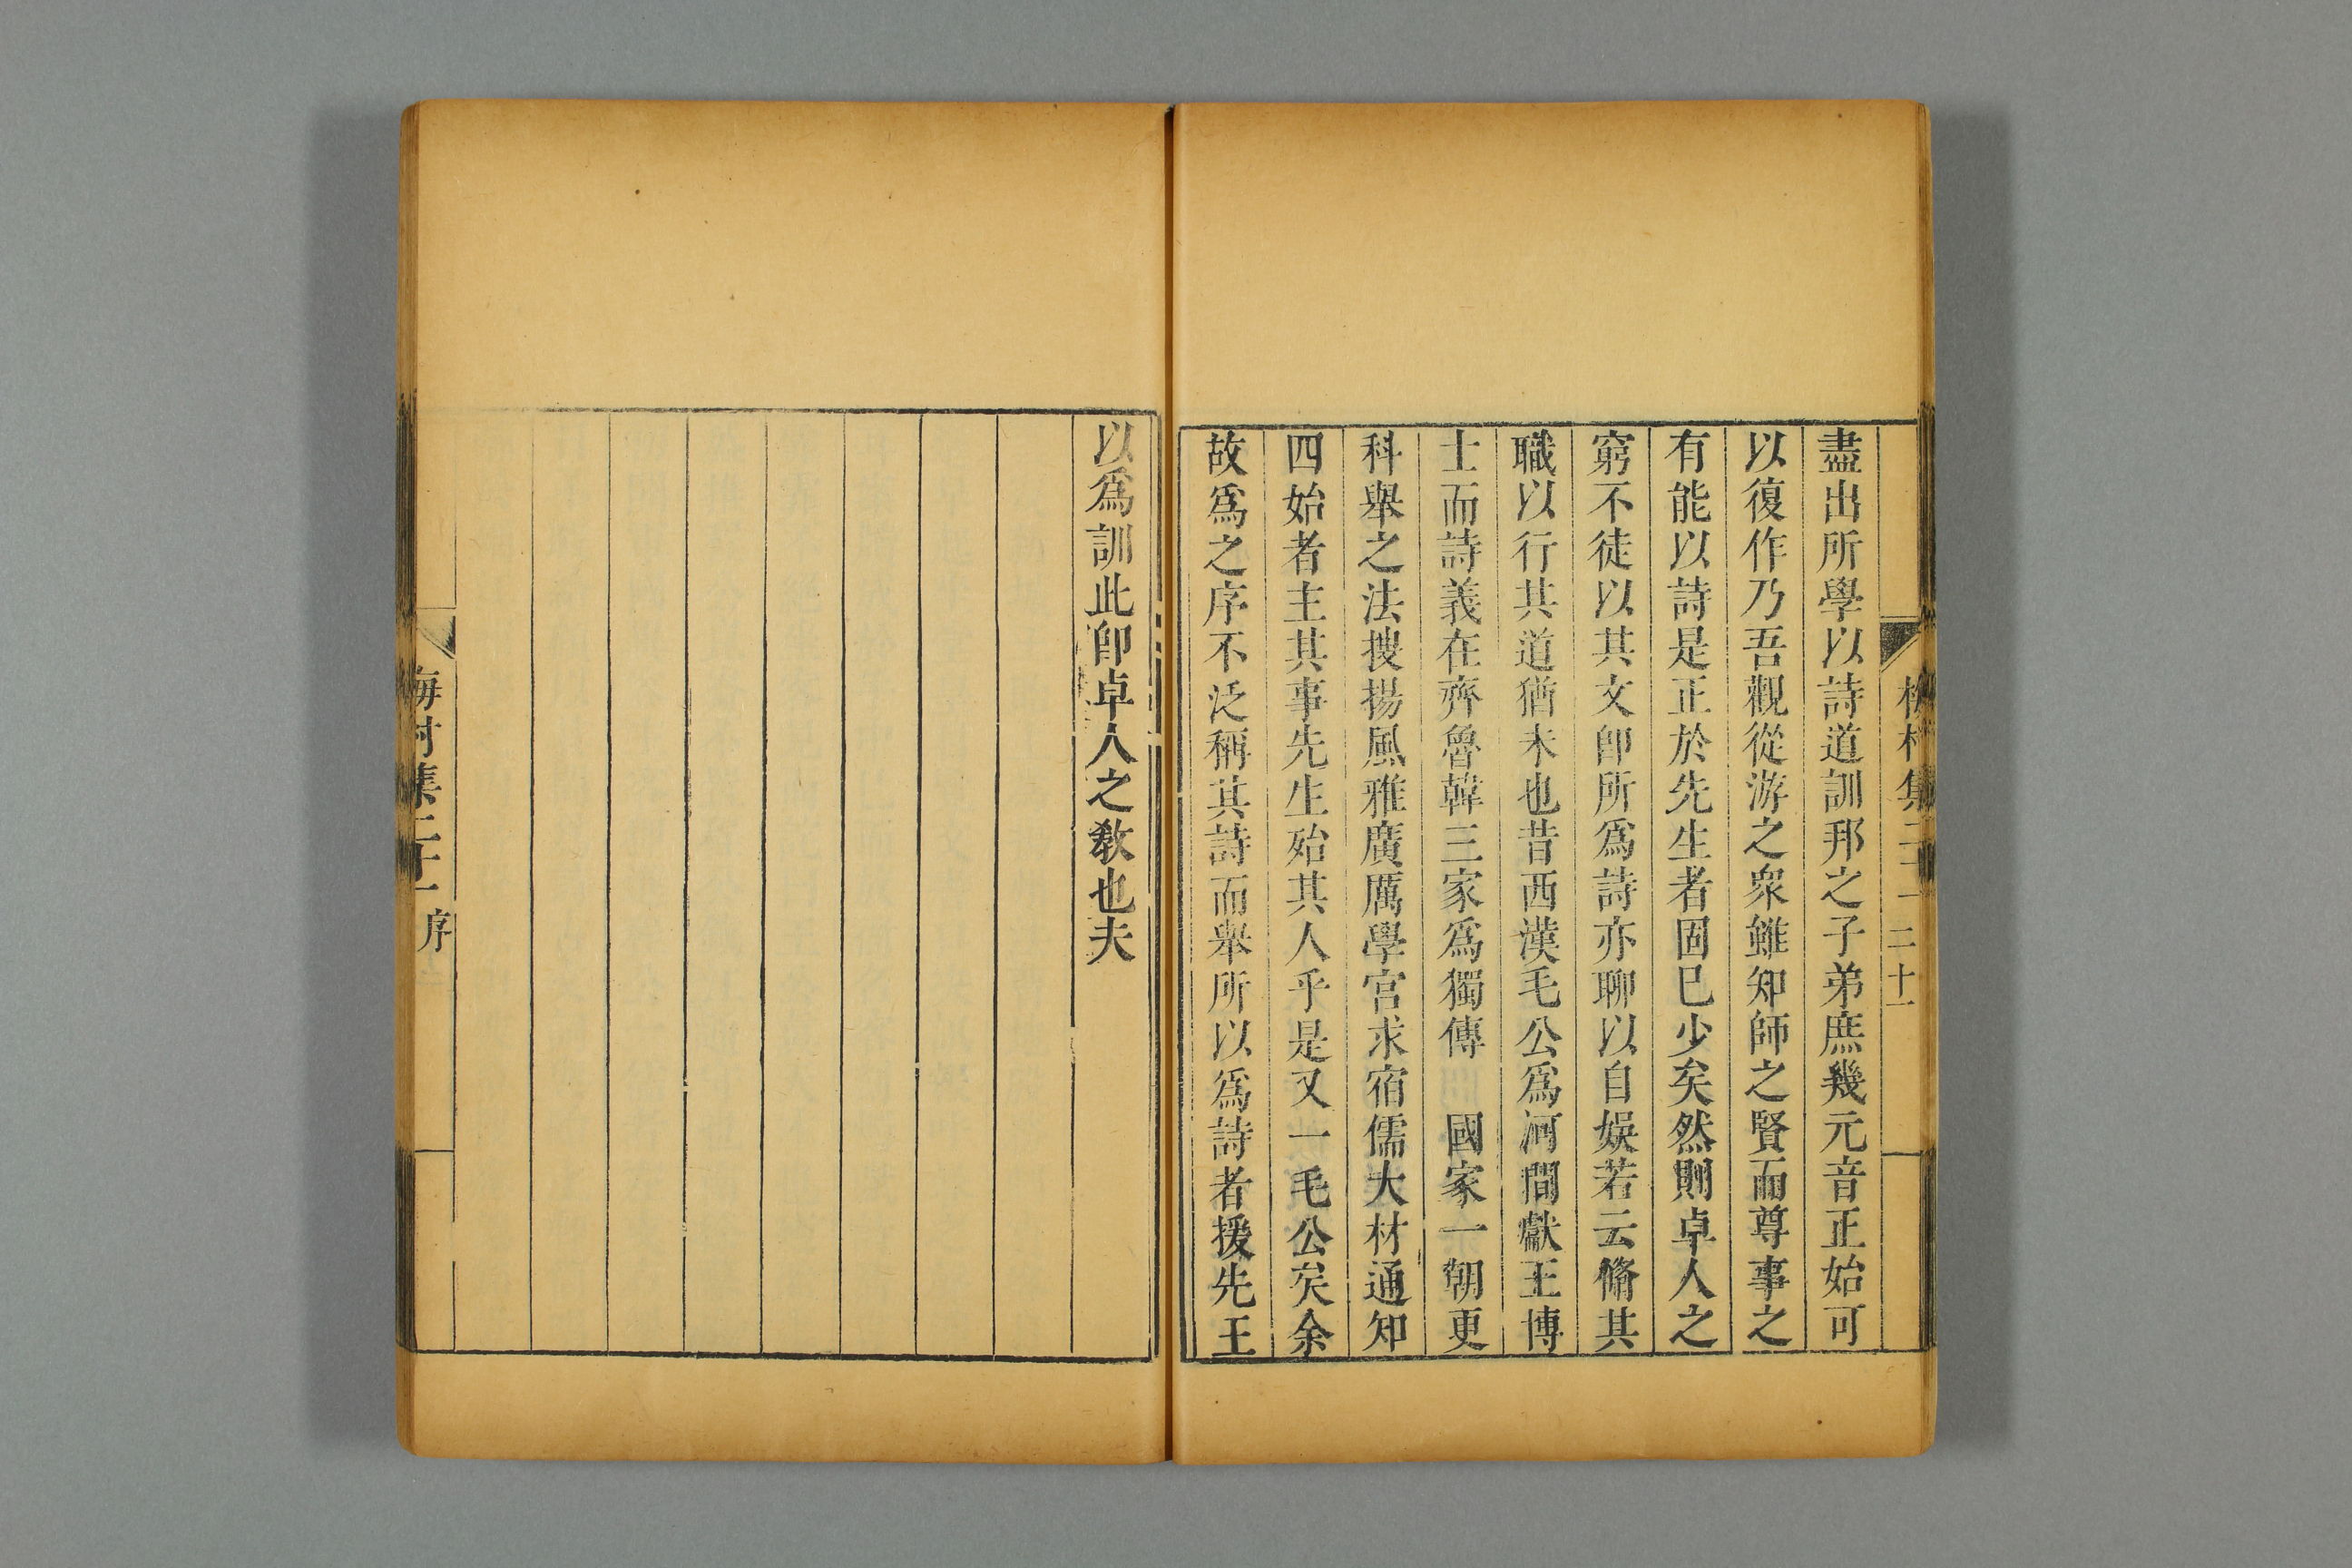 盡出所學以詩道訓邦之子弟庶幾元音正始可
以復作乃吾觀從游之衆雖知師之賢而尊事之
有能以詩是正於先生者固已少矣然則卓人之
窮不徒以其文卽所爲詩亦聊以自娛若云脩其
職以行其道猶未也昔西漢毛公爲河間獻王博
士而詩義在齊魯韓三家爲獨傳　國家一朝更
科舉之法搜揚風雅廣厲學官求宿儒大材通知
四始者主其事先生殆其人乎是又一毛公矣余
故爲之序不泛稱其詩而舉所以爲詩者援先王
以爲訓此卽卓人之敎也夫
梅村集二十一 序